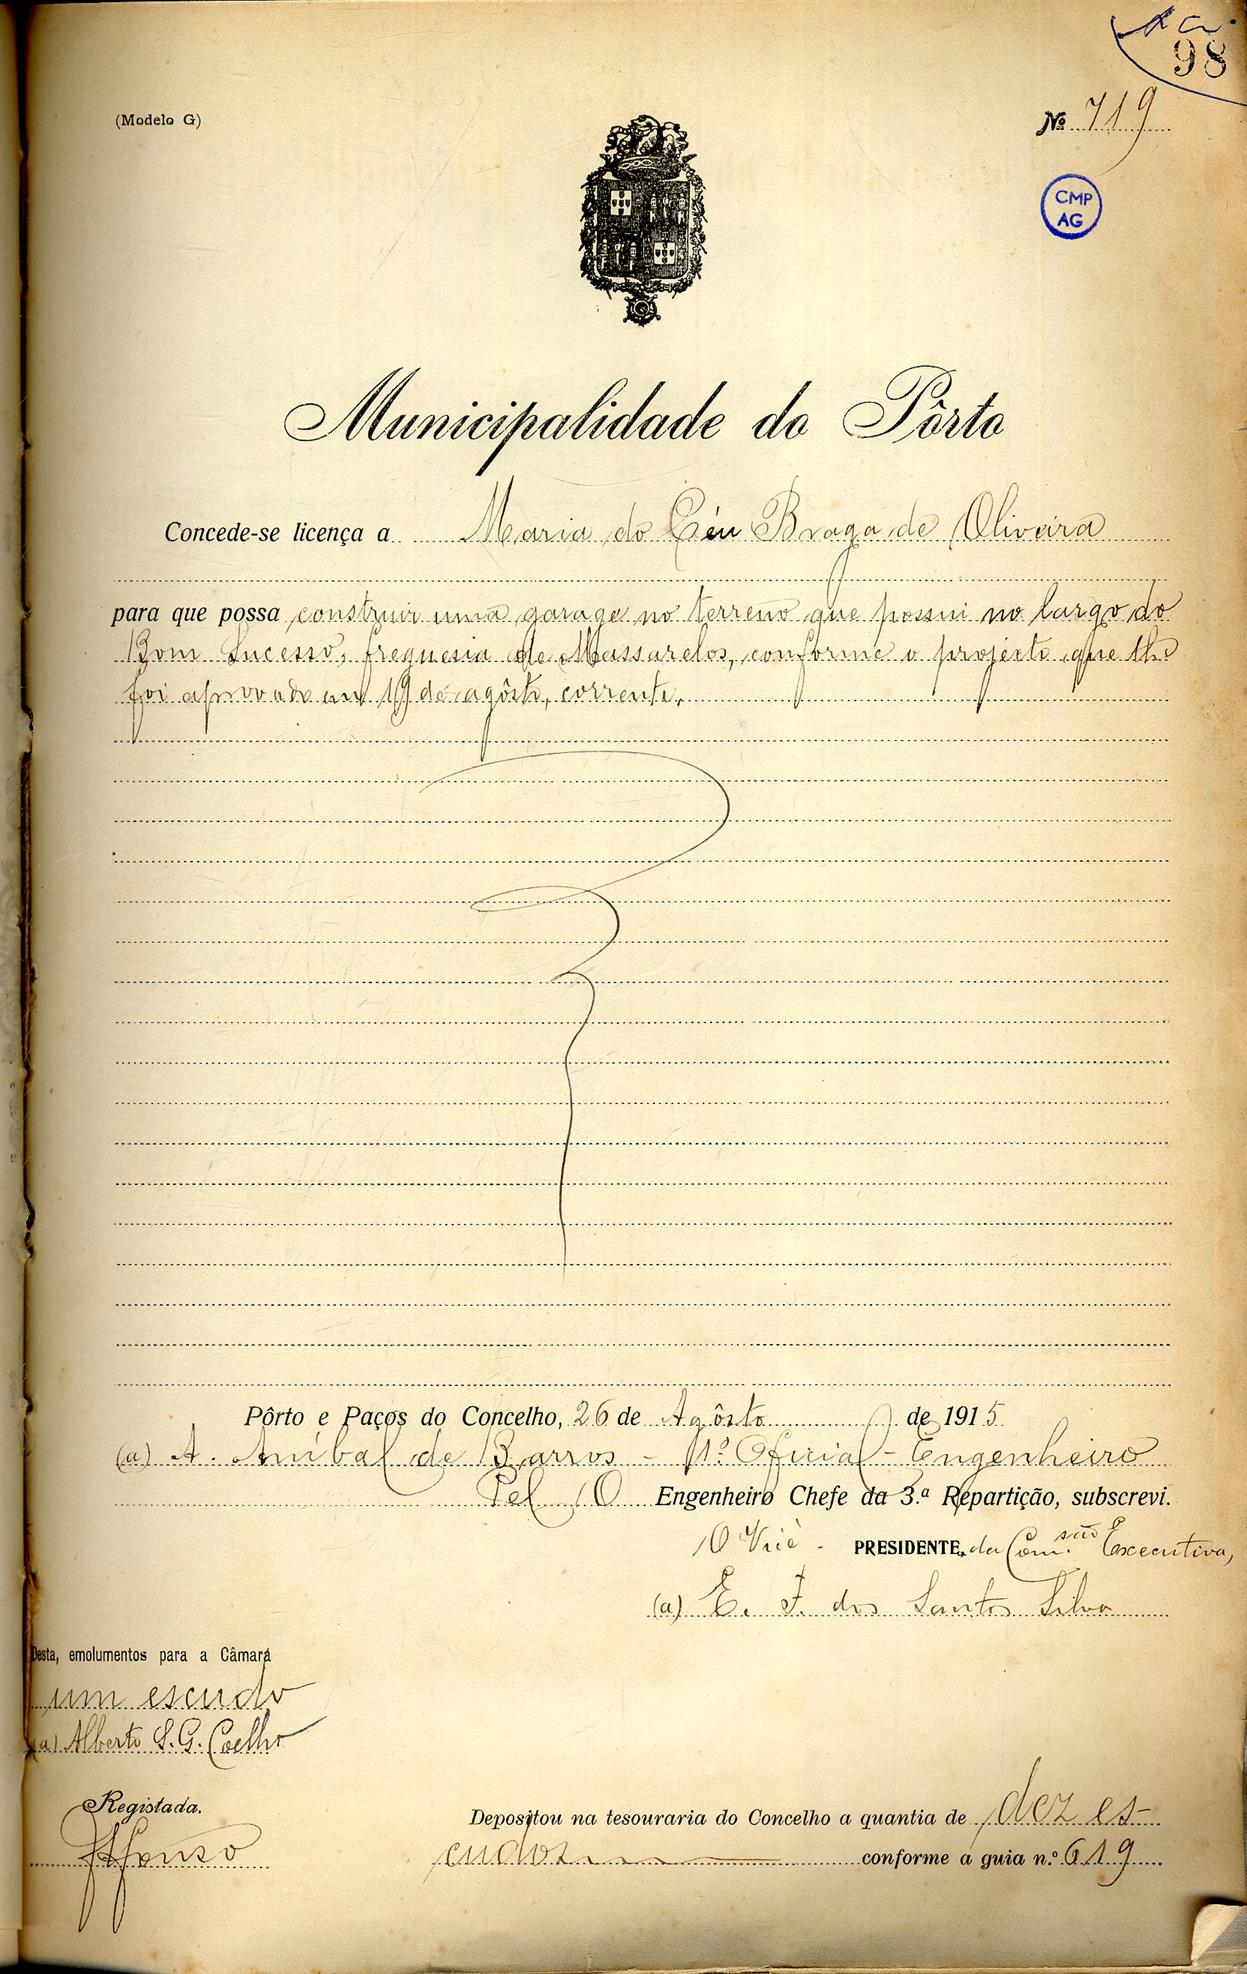 98
(Modelo G)
Nº 719
CMP
AG
Municipalidade do Pôrto
Concede-se licença a Maria do Céu Braga de Oliveira
para que possa construir uma garage no terreno que possui no largo do
Bom Sucesso, freguesia de Massarelos, conforme o projéto que lhe
foi aprovado em 19 de agôsto, corrente.
Pôrto e Paços do Concelho, 26 de Agôsto de 1915
(a) A. Aníbal de Barros - 1º Oficial - Engenheiro
Pel O Engenheiro Chefe da 3.ª Repartição, subscrevi.
O Vice - PRESIDENTE, da Com.são Executiva,
(a) E. F. dos Santos Silva
Desta, emolumentos para a Câmara
um escudo
(a) Alberto S. G. Coelho
Registada.
Afonso
Depositou na tesouraria do Concelho a quantia de dez es-
cudos conforme a guia n.º 619